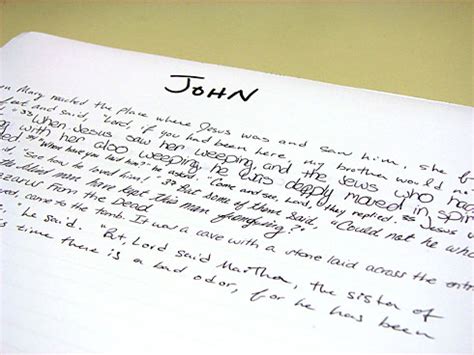 JOHN
Mary reached the place where Jesus was and saw him, she f
feet and said, "Lord, if you had been here, my brother would n
33 When Jesus saw her weeping, and the Jews who had
with her also weeping, he was deeply moved in spir
34 "Where have you laid him?" he asked. "Come and see, Lord," they replied. 35 Jesus
"See how he loved him!" 37 But some of them said, "Could not he who
blind man have kept this man from dying?"
Lazarus From the Dead
came to the tomb. It was a cave with a stone laid across the entr
he said. "But, Lord said Martha, the sister of
time there is a bad odor, for he has been